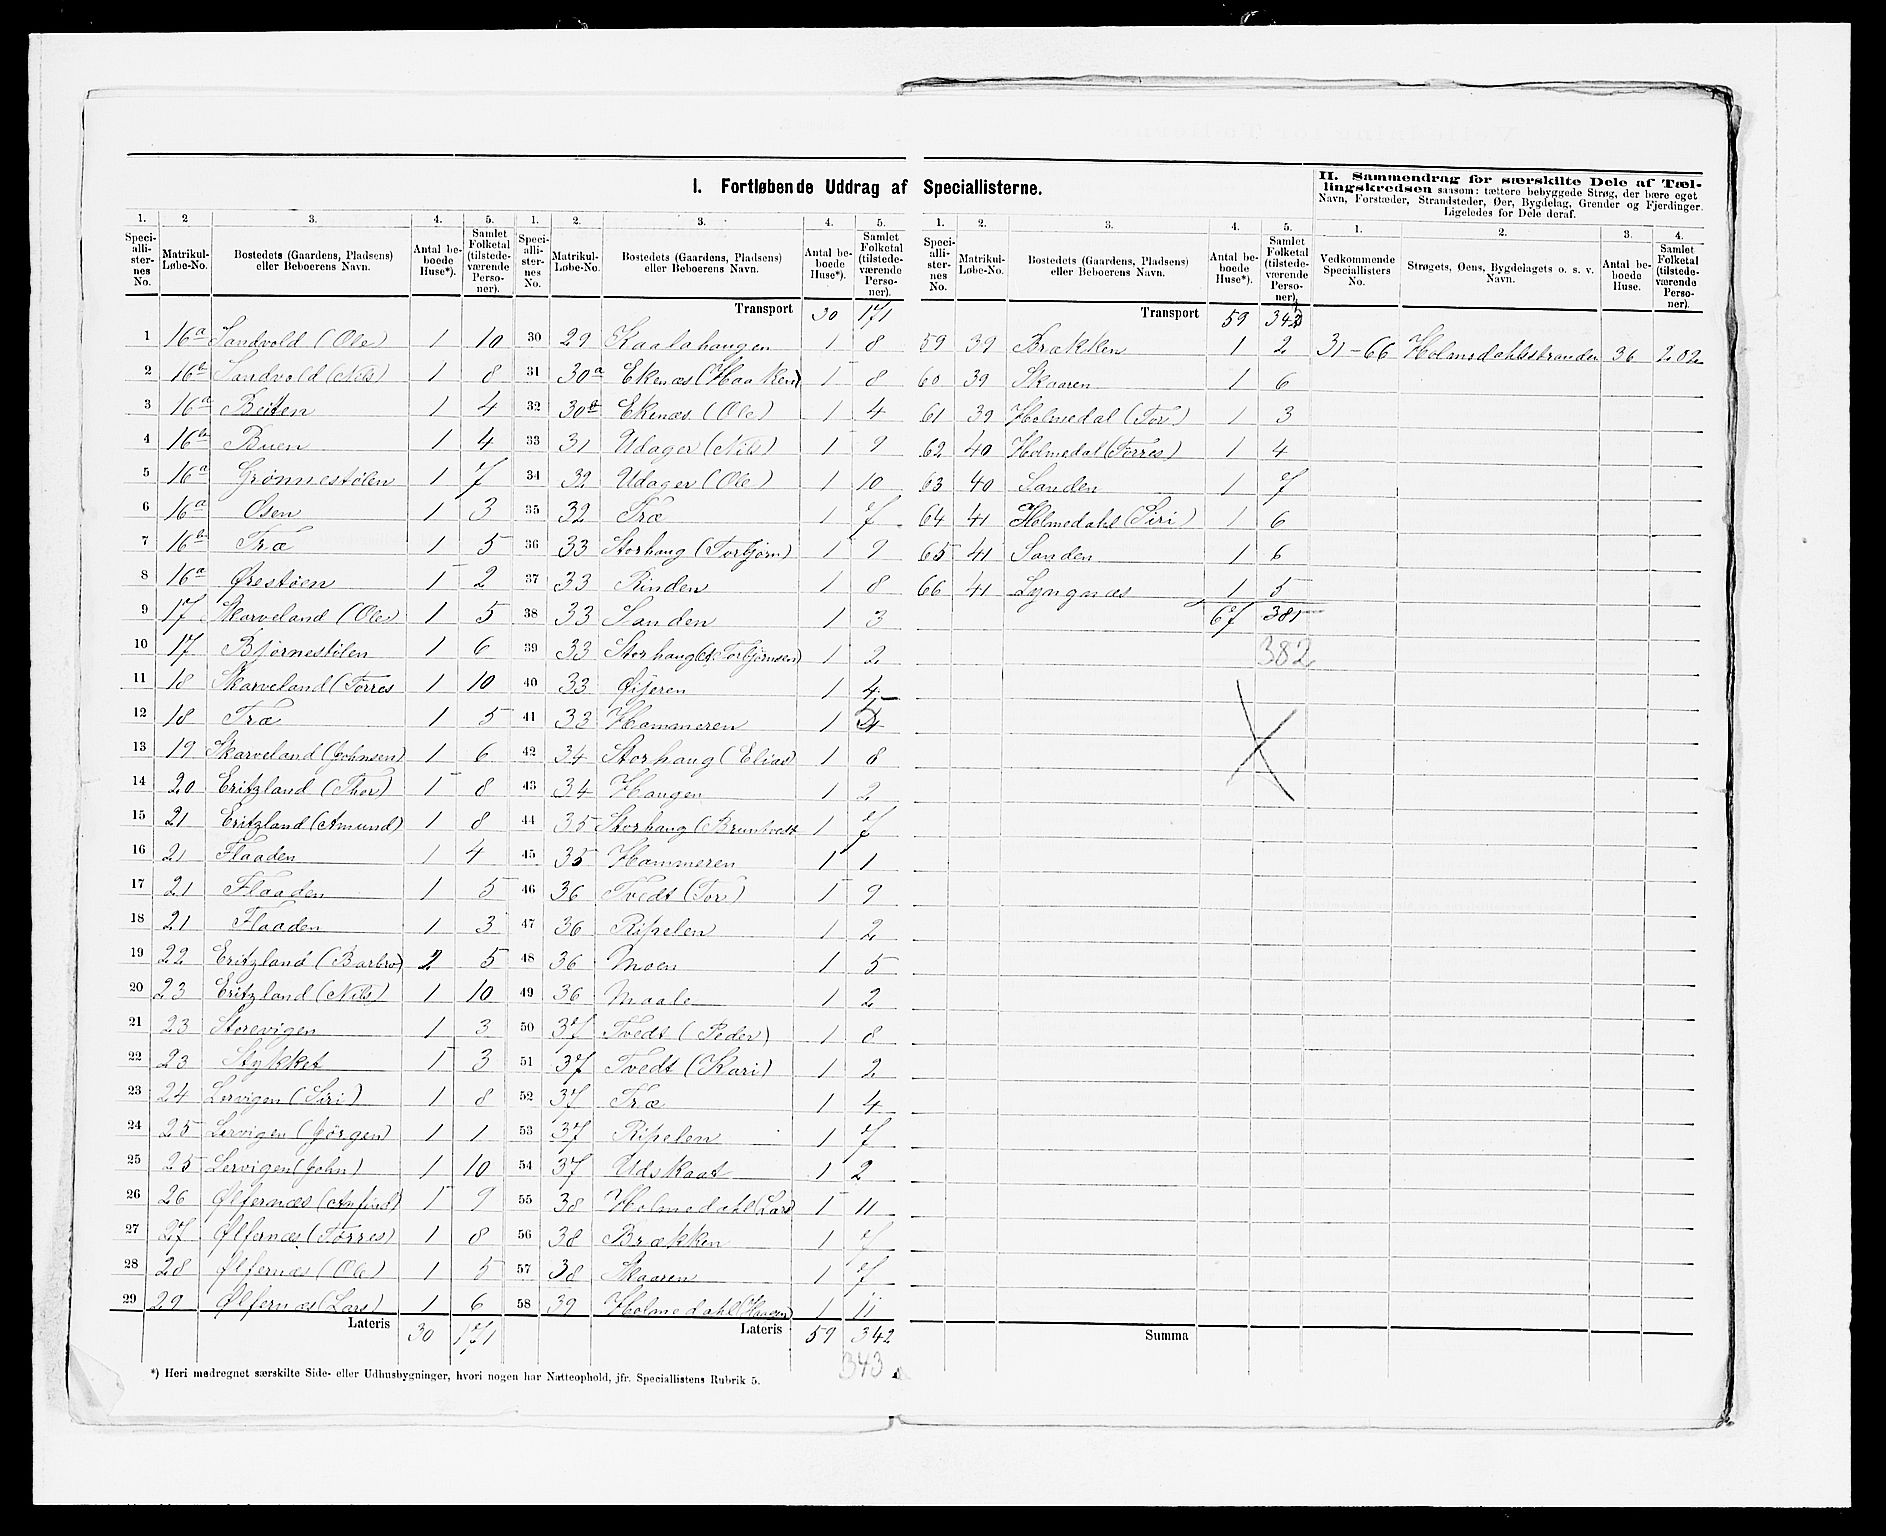 I. Fortløbende Uddrag af Speciallisterne.
II. Sammendrag for særskilte Dele af Tæl-
lingskredsen saasom: tættere bebyggede Strøg, der bære eget
Navn, Forstæder, Strandsteder, Øer, Bygdelag, Grender og Fjerdinger.
Ligeledes for Dele deraf.
1. 2 3. 4. 5.
Speci-alli-ster-nes No. Matrikul-Løbe-No. Bostedets (Gaardens, Pladsens) eller Beboerens Navn. Antal be-boede Huse*). Samlet Folketal (tilstede-værende Perso-ner).
1 16a Sandvold (Ole) 1 10
2 16b Sandvold (Nils) 1 8
3 16a Beiten 1 4
4 16b Buen 1 4
5 16a Grønnestølen 1 7
6 16a Osen 1 3
7 16b Træ 1 5
8 16a Ørestøen 1 2
9 17 Skarveland (Ole) 1 5
10 17 Bjørnestølen 1 6
11 18 Skarveland (Tørres 1 10
12 18 Træ 1 5
13 19 Skarveland (Johnsen) 1 6
14 20 Eritzland (Thor) 1 8
15 21 Eritzland (Amund) 1 8
16 21 Flaaden 1 4
17 21 Flaaden 1 5
18 21 Flaaden 1 3
19 22 Eritzland (Barbro) 2 5
20 23 Eritzland (Nils) 1 10
21 23 Storevigen 1 3
22 23 Stykket 1 3
23 24 Lervigen (Siri) 1 8
24 25 Lervigen (Jörgen) 1 1
25 25 Lervigen (John) 1 10
26 26 Ølfernæs (Anfind) 1 9
27 27 Ølfernæs (Tørres) 1 8
28 28 Ølfernæs (Ole) 1 5
29 29 Ølfernæs (Lars) 1 6
Lateris 30 171
1. 2. 3. 4. 5.
Speci-alli-ster-nes No. Matrikul-Løbe-No. Bostedets (Gaardens, Pladsens) eller Beboerens Navn. Antal be-boede Huse*). Samlet Folketal (tilstede-værende Perso-ner).
Transport 30 171
30 29 Kaalahaugen 1 8
31 30a Ekenæs (Haaken) 1 8
32 30b Ekenæs (Ole) 1 4
33 31 Udager (Nils) 1 9
34 32 Udager (Ole) 1 10
35 32 Træ 1 7
36 33 Storhaug (Torbjørn) 1 9
37 33 Rinden 1 8
38 33 Sanden 1 3
39 33 Storhaug (Torbjørnsen) 1 2
40 33 Øijeren 1 4
41 33 Hammeren 1 5
42 34 Storhaug (Elias) 1 8
43 34 Haugen 1 2
44 35 Storhaug (Bruntvedt 1 7
45 35 Hammeren 1 1
46 36 Tvedt (Tor) 1 9
47 36 Ripelen 1 2
48 36 Moen 1 5
49 36 Maale 1 2
50 37 Tvedt (Peder) 1 8
51 37 Tvedt (Kari) 1 2
52 37 Træ 1 4
53 37 Ripelen 1 7
54 37 Udskaat 1 2
55 38 Holmedahl (Lars) 1 11
56 38 Brækken 1 7
57 38 Skaaren 1 7
58 39 Holmedahl (Haagen) 1 11
Lateris 59 342
343
1. 2. 3. 4. 5.
Speci-alli-ster-nes No. Matrikul-Løbe-No. Bostedets (Gaardens, Pladsens) eller Beboerens Navn. Antal be-boede Huse*). Samlet Folketal (tilstede-værende Perso-ner).
Transport 59 342
59 39 Brækken 1 2
60 39 Skaaren 1 6
61 39 Holmedal (Tor) 1 3
62 40 Holmedal (Tørres) 1 4
63 40 Sanden 1 7
64 41 Holmedahl (Siri) 1 6
65 41 Sanden 1 6
66 41 Lyngnæs 1 5
67 381
382
Summa
1. 2. 3. 4.
Vedkommende Speciallisters No. Strøgets, Øens, Bygdelagets o. s. v. Navn. Antal be-boede Huse. Samlet Folketal (tilstede-værende Perso-ner).
31-66 Holmedahlsstranden 36 202
*) Heri medregnet særskilte Side- eller Udhusbygninger, hvori nogen har Natteophold, jfr. Speciallistens Rubrik 5.